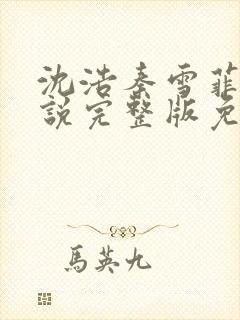 沈浩秦雪菲
说完整版免
馬英九